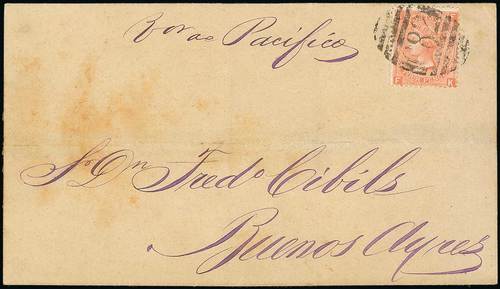 Por Pacifico
Sr. Dn. Fredo Cibils
Buenos Ayres
C83
F K